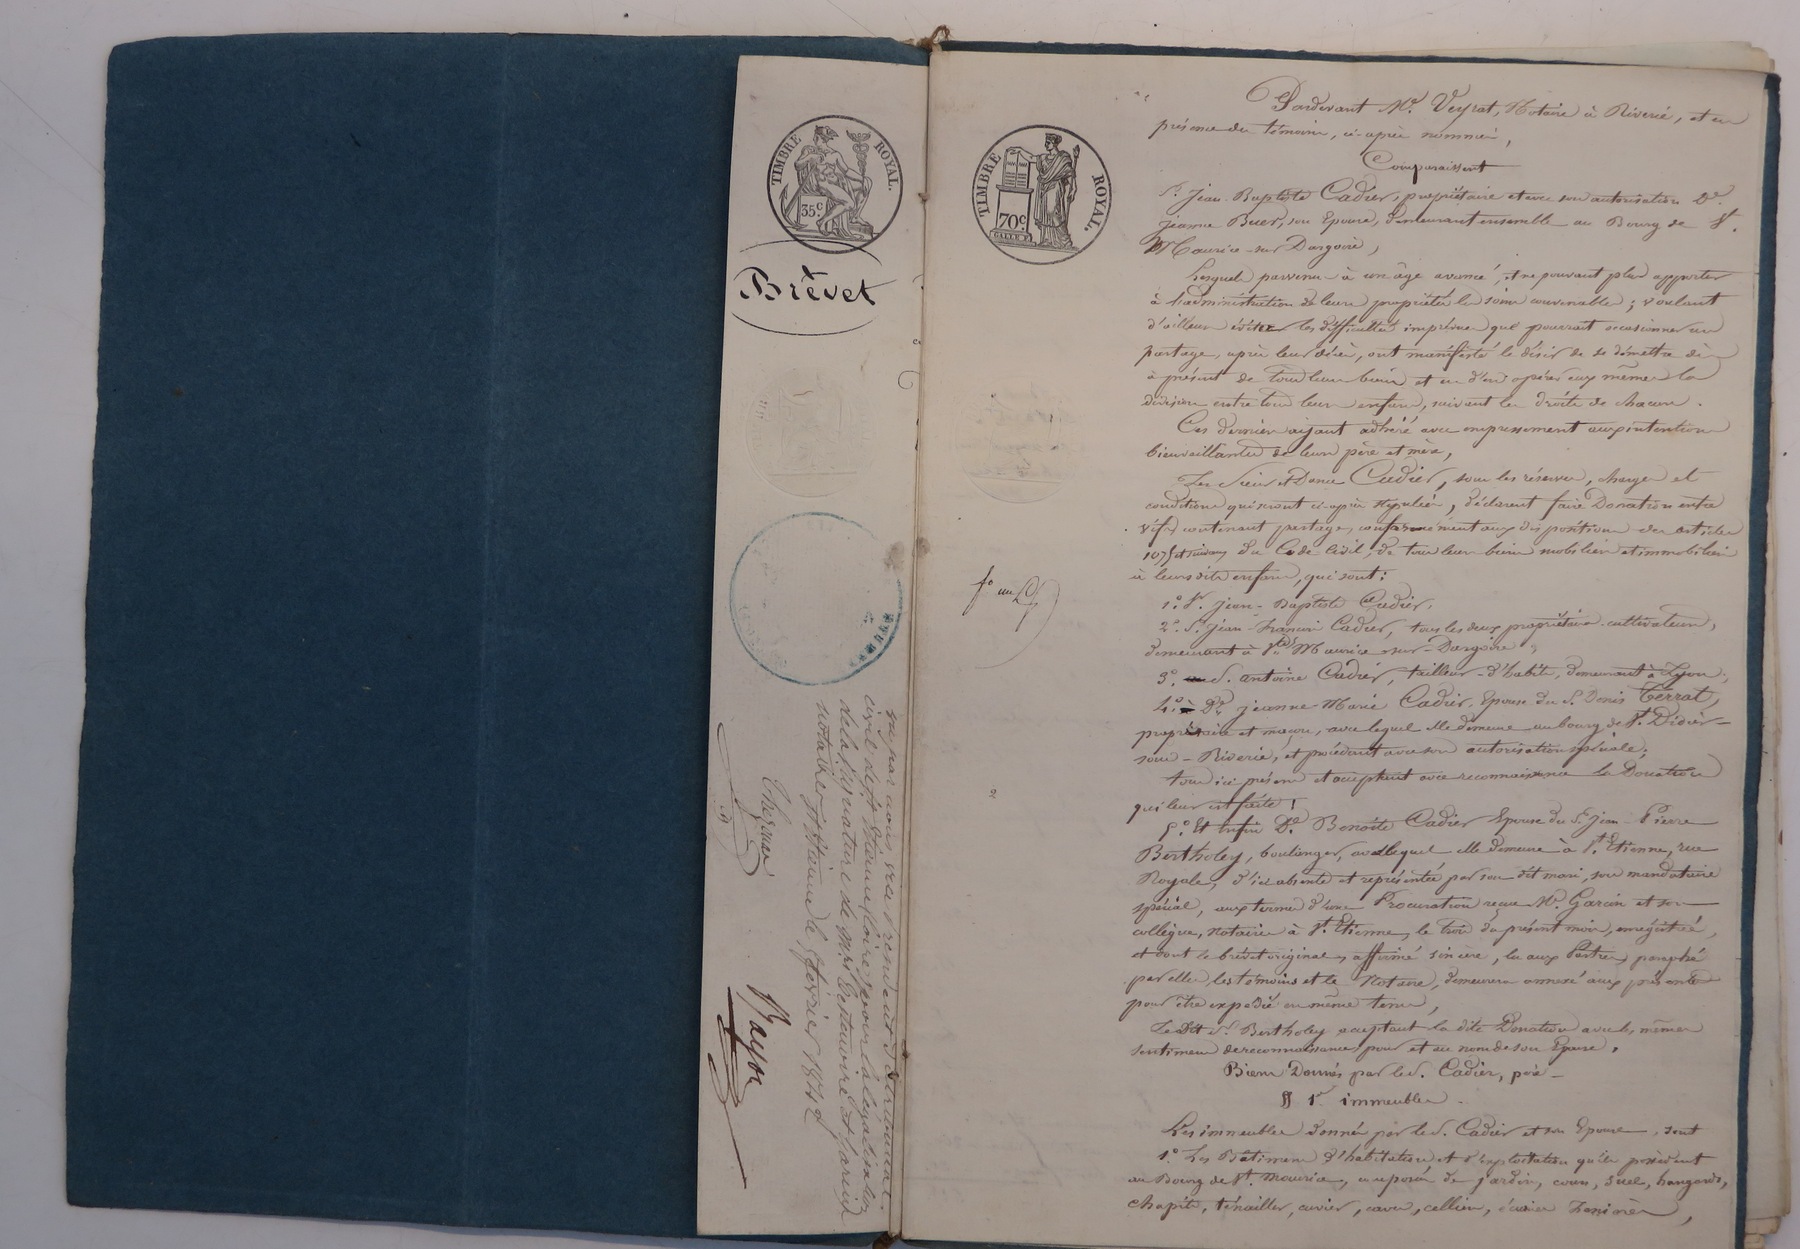 TIMBRE ROYAL.
35c.
Brevet
Vu par nous vice Président du tribunal
civil de St Etienne (Loire) pour la légalisation
de la signature de Mrs Testenoire et Garcin
notaires à St Etienne le février 1842
TIMBRE ROYAL.
70c.
fo un
Pardevant Me. Veyrat, Notaire à Riverie, et en
présence des témoins, ci-après nommés,
Comparaissent
Sr. Jean-Baptiste Cadier, propriétaire et avec son autorisation De.
Jeanne Buer, son Epouse, demeurant ensemble au Bourg de St.
Maurice-sur Dargoire,
Lesquels parvenus à un âge avancé, et ne pouvant plus apporter
à l'administration de leurs propriétés les soins convenables; voulant
d'ailleurs éviter les difficultés imprévues que pourrait occasionner un
partage, après leur décès, ont manifesté le désir de se démettre dès
à présent de tous leurs biens et en d'en opérer eux même la
division entre tous leurs enfans, suivant les droits de chacun.
Ces derniers ayant adhéré avec empressement aux intentions
bienveillantes de leurs père et mère,
Les Sieur et Dame Cadier, sous les réserves, charges et
conditions qui seront ci-après stipulées, déclarent faire Donation entre
vifs contenant partage, conformément aux dispositions des articles
1075 et suivans du Code Civil, de tous leurs biens mobiliers et immobiliers
à leurs dits enfans, qui sont:
1o. Sr. Jean-Baptiste Cadier,
2o. S. Jean-François Cadier, tous les deux propriétaires-cultivateurs,
demeurant à St. Maurice-sur-Dargoire;
3o. S. Antoine Cadier, tailleur-d'habits, demeurant à Lyon;
4o. De. Jeanne-Marie Cadier, Epouse du S. Denis Terrat,
propriétaire et maçon, avec lequel elle demeure au bourg de St. Didier-
sous-Riverie, et procédant avec son autorisation spéciale;
tous ici présens et acceptant avec reconnaissance la Donation
qui leur est faite;
5o. Et enfin De. Benoite Cadier Epouse du Sr. Jean-Pierre
Bertholey, boulanger, avec lequel elle demeure à St. Etienne, rue
Royale, d'ici absente et représentée par son dit mari, son mandataire
spécial, aux termes d'une Procuration reçue Me. Garcin et son
collègue, Notaires à St. Etienne, le trois du présent mois, enregistrée,
et dont le brévet original, affirmé sincère, lu aux Parties, paraphé
par elles, les témoins et le Notaire, demeurera annexé aux présentes
pour être expédié en même tems,
Le dit S. Bertholey acceptant la dite Donation avec les mêmes
sentimens de reconnaissance, pour et au nom de son Epouse,
Biens Donnés par le S. Cadier, père
§ 1er immeubles.
Les immeubles donnés par le S. Cadier et son Epouse, sont
1o. Les Bâtimens d'habitation et d'exploitation qu'ils possèdent
au Bourg de St. Maurice, composés de jardin, cours, suel, hangards,
chapits, ténailler, cuvier, caves, cellier, écuries fenières,